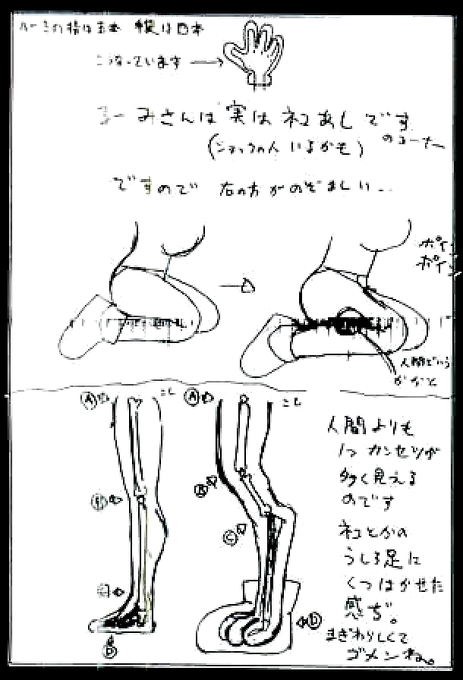 るーみの指は五本 線は四本
こうなっています
るーみさんは実はネコあしです。
(ショックの人いるかも)
のコーナー
ですので 右の方がのぞましい…
ポイ
ポイ
人間でいう
かかと
A こし
A こし
B
B
C
C
D
D
人間よりも
1つ カンセツが
多く見える
のです
ネコとかの
うしろ足に
くつはかせた
感じ。
まぎわらしくて
ゴメンね。